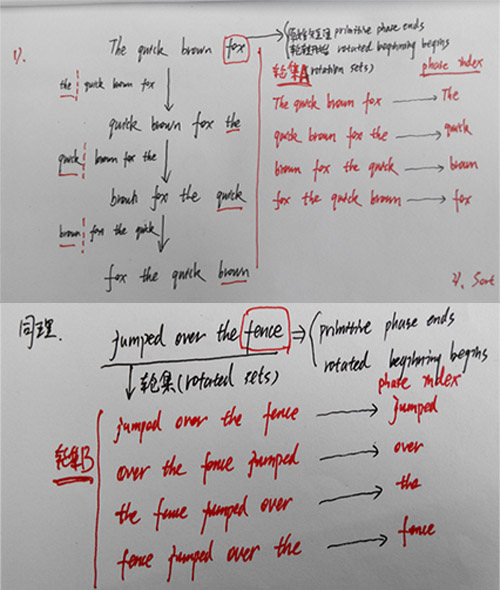 1).
The quick brown fox
primitive phase ends
rotated beginning begins
the quick brown fox
quick brown fox the
quick brown fox the
brown fox the quick
brown fox the quick
fox the quick brown
轮集A (rotation sets)
phase index
The quick brown fox → The
quick brown fox the → quick
brown fox the quick → brown
fox the quick brown → fox
2). Sort
同理.
jumped over the fence
primitive phase ends
rotated beginning begins
轮集(rotated sets)
phase index
轮集B
jumped over the fence → jumped
over the fence jumped → over
the fence jumped over → the
fence jumped over the → fence